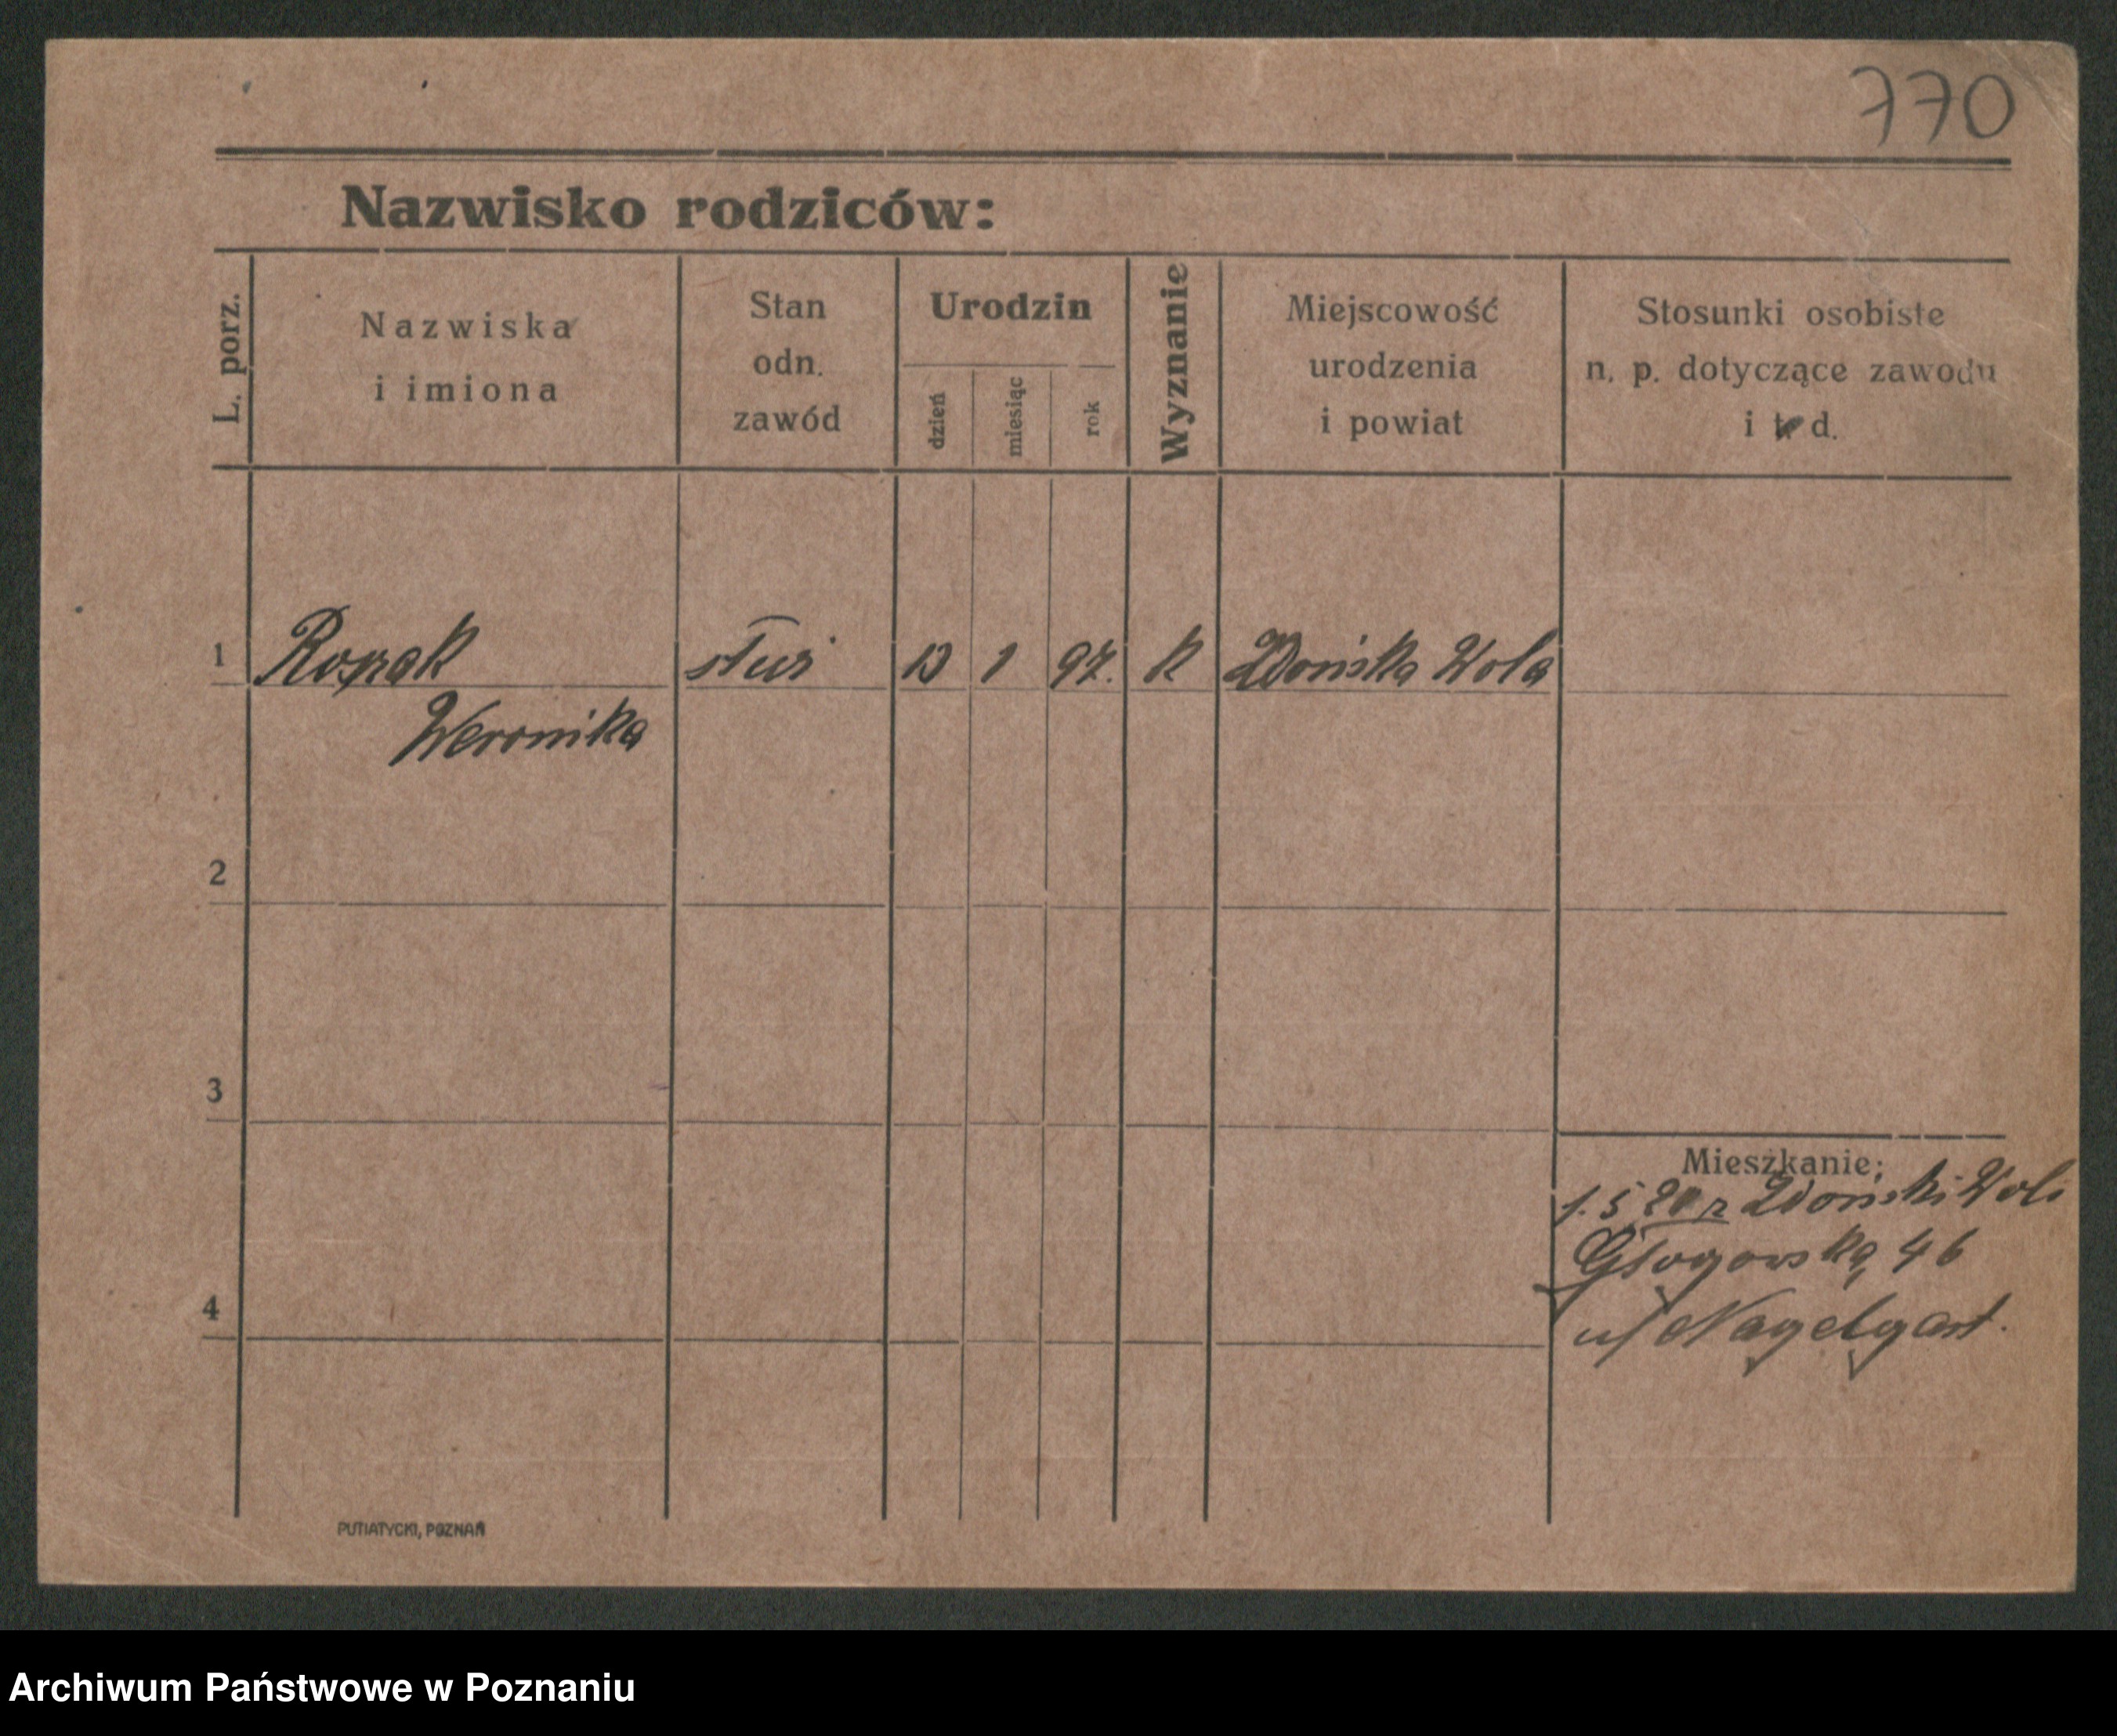 770
Nazwisko rodziców:
L. porz.
Nazwiska
i imiona
Stan
odn.
zawód
Urodzin
dzień
miesiąc
rok
Wyznanie
Miejscowość
urodzenia
i powiat
Stosunki osobiste
n. p. dotyczące zawodu
i t. d.
1
służ
1 97.
k
Zdońska Wola
Weronika
2
3
Mieszkanie:
1. 5 z Zdoński Woli
Głogowska 46
4
PUTIATYCKI, POZNAŃ
Archiwum Państwowe w Poznaniu